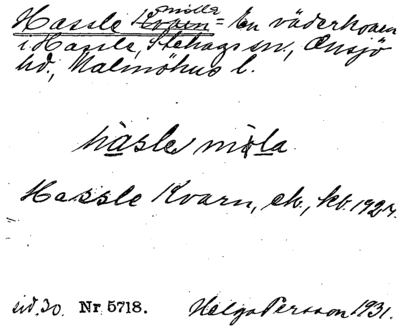 Hassle mölla = En väderkvarn
i Hassle, Stehags sn., Onsjö
hd., Malmöhus l.
hasle mǫla
Hassle Kvarn, ek., kt. 1927.
sid. 30. Nr. 5718. Helge Persson 1931.